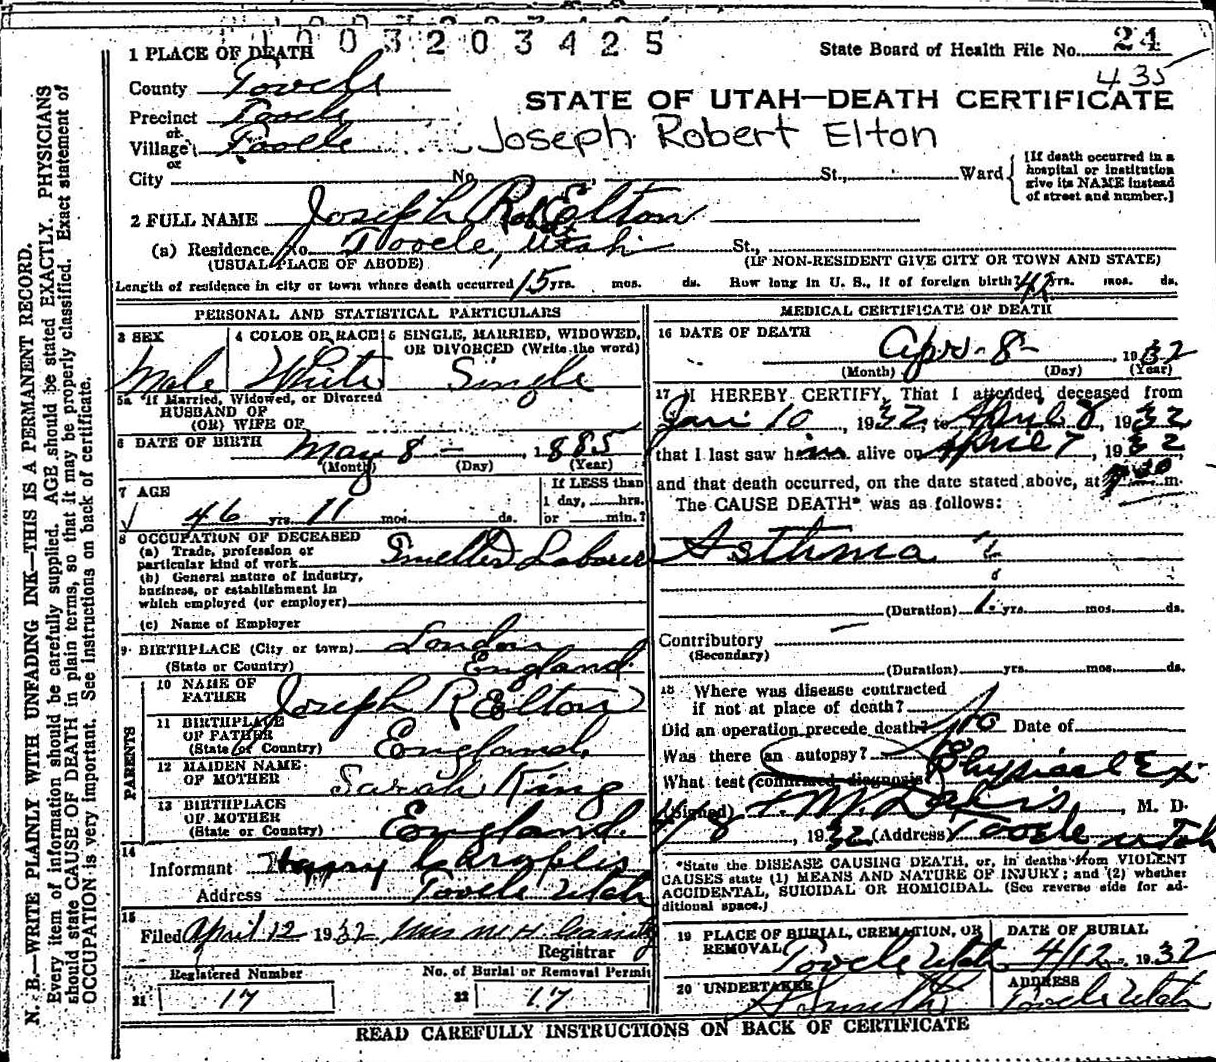 1003203425
State Board of Health File No. 24
435
1 PLACE OF DEATH
STATE OF UTAH—DEATH CERTIFICATE
County Tooele
Precinct Tooele
or
Village Tooele
Joseph Robert Elton
or
City No. St., Ward
[If death occurred in a
hospital or institution
give its NAME instead
of street and number.]
2 FULL NAME Joseph Rob Elton
(a) Residence. No. Tooele, Utah St.,
(USUAL PLACE OF ABODE) (IF NON-RESIDENT GIVE CITY OR TOWN AND STATE)
Length of residence in city or town where death occurred 15 yrs. mos. ds. How long in U. S., if of foreign birth? yrs. mos. ds.
PERSONAL AND STATISTICAL PARTICULARS
3 SEX 4 COLOR OR RACE 5 SINGLE, MARRIED, WIDOWED,
OR DIVORCED (Write the word)
Male White Single
5a If Married, Widowed, or Divorced
HUSBAND OF
(OR) WIFE OF
6 DATE OF BIRTH May 8 — 1885
(Month) (Day) (Year)
7 AGE
46 yrs. 11 mos. ds.
If LESS than
1 day, hrs.
or min.?
8 OCCUPATION OF DECEASED
(a) Trade, profession or
particular kind of work Smelter Laborer
(b) General nature of industry,
business, or establishment in
which employed (or employer)
(c) Name of Employer
9 BIRTHPLACE (City or town) London
(State or Country) England
PARENTS
10 NAME OF
FATHER Joseph R Elton
11 BIRTHPLACE
OF FATHER
(State or Country) England.
12 MAIDEN NAME
OF MOTHER Sarah King
13 BIRTHPLACE
OF MOTHER
(State or Country) England.
14
Informant Harry
Address Tooele Utah
15
Filed April 12 1932 Miss M H
Registrar
Registered Number No. of Burial or Removal Permit
21 17 22 17
MEDICAL CERTIFICATE OF DEATH
16 DATE OF DEATH
Apr. 8 — , 1932
(Month) (Day) (Year)
17 I HEREBY CERTIFY, That I attended deceased from
Jan 10, 1932, to April 8, 1932
that I last saw him alive on April 7, 1932,
and that death occurred, on the date stated above, at m.
The CAUSE DEATH* was as follows:
Asthma
(Duration) 1 yrs. mos. ds.
Contributory
(Secondary)
(Duration) yrs. mos. ds.
18 Where was disease contracted
if not at place of death?
Did an operation precede death? No Date of
Was there an autopsy?
What test confirmed diagnosis? Physical Ex.
(Signed) , M. D.
4/8, 1932 (Address) Tooele Utah
*State the DISEASE CAUSING DEATH, or, in deaths from VIOLENT
CAUSES state (1) MEANS AND NATURE OF INJURY; and (2) whether
ACCIDENTAL, SUICIDAL OR HOMICIDAL. (See reverse side for ad-
ditional space.)
19 PLACE OF BURIAL, CREMATION, OR
REMOVAL Tooele Utah
DATE OF BURIAL
4/12, 1932
20 UNDERTAKER
ADDRESS
Tooele Utah
READ CAREFULLY INSTRUCTIONS ON BACK OF CERTIFICATE
N. B.—WRITE PLAINLY WITH UNFADING INK—THIS IS A PERMANENT RECORD.
Every item of information should be carefully supplied. AGE should be stated EXACTLY. PHYSICIANS
should state CAUSE OF DEATH in plain terms, so that it may be properly classified. Exact statement of
OCCUPATION is very important. See instructions on back of certificate.